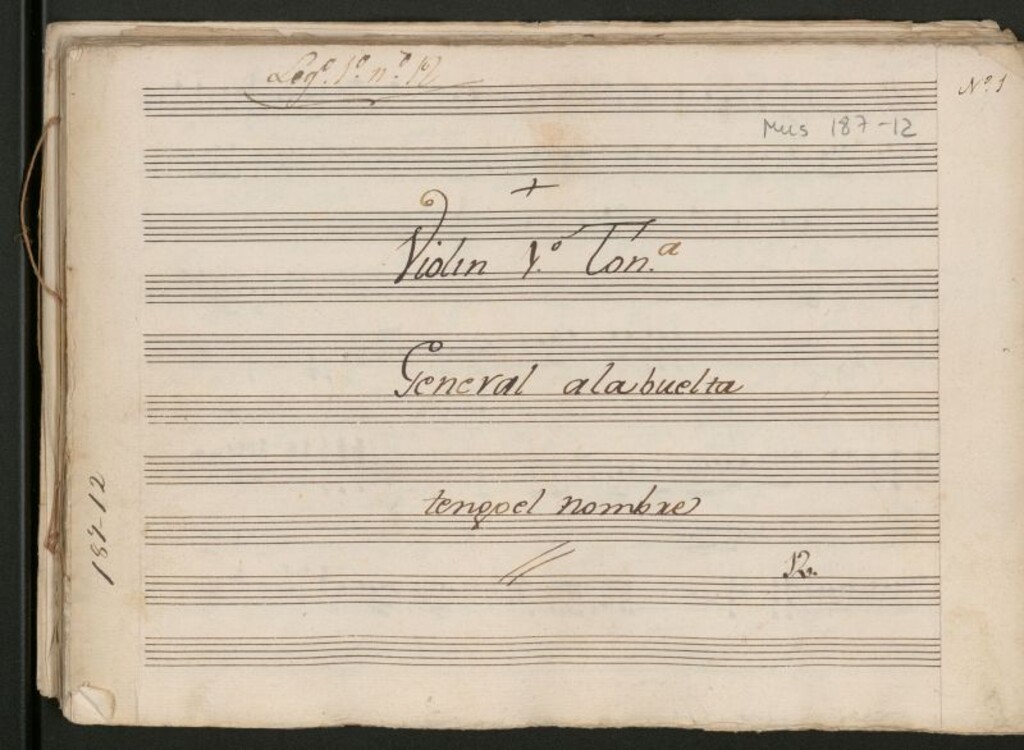 Leg.º 1.º n.º 12
Nº. 1
Mus 187-12
Violin 1.º Ton.ª
General alabuelta
tengoel nombre
12.
187-12